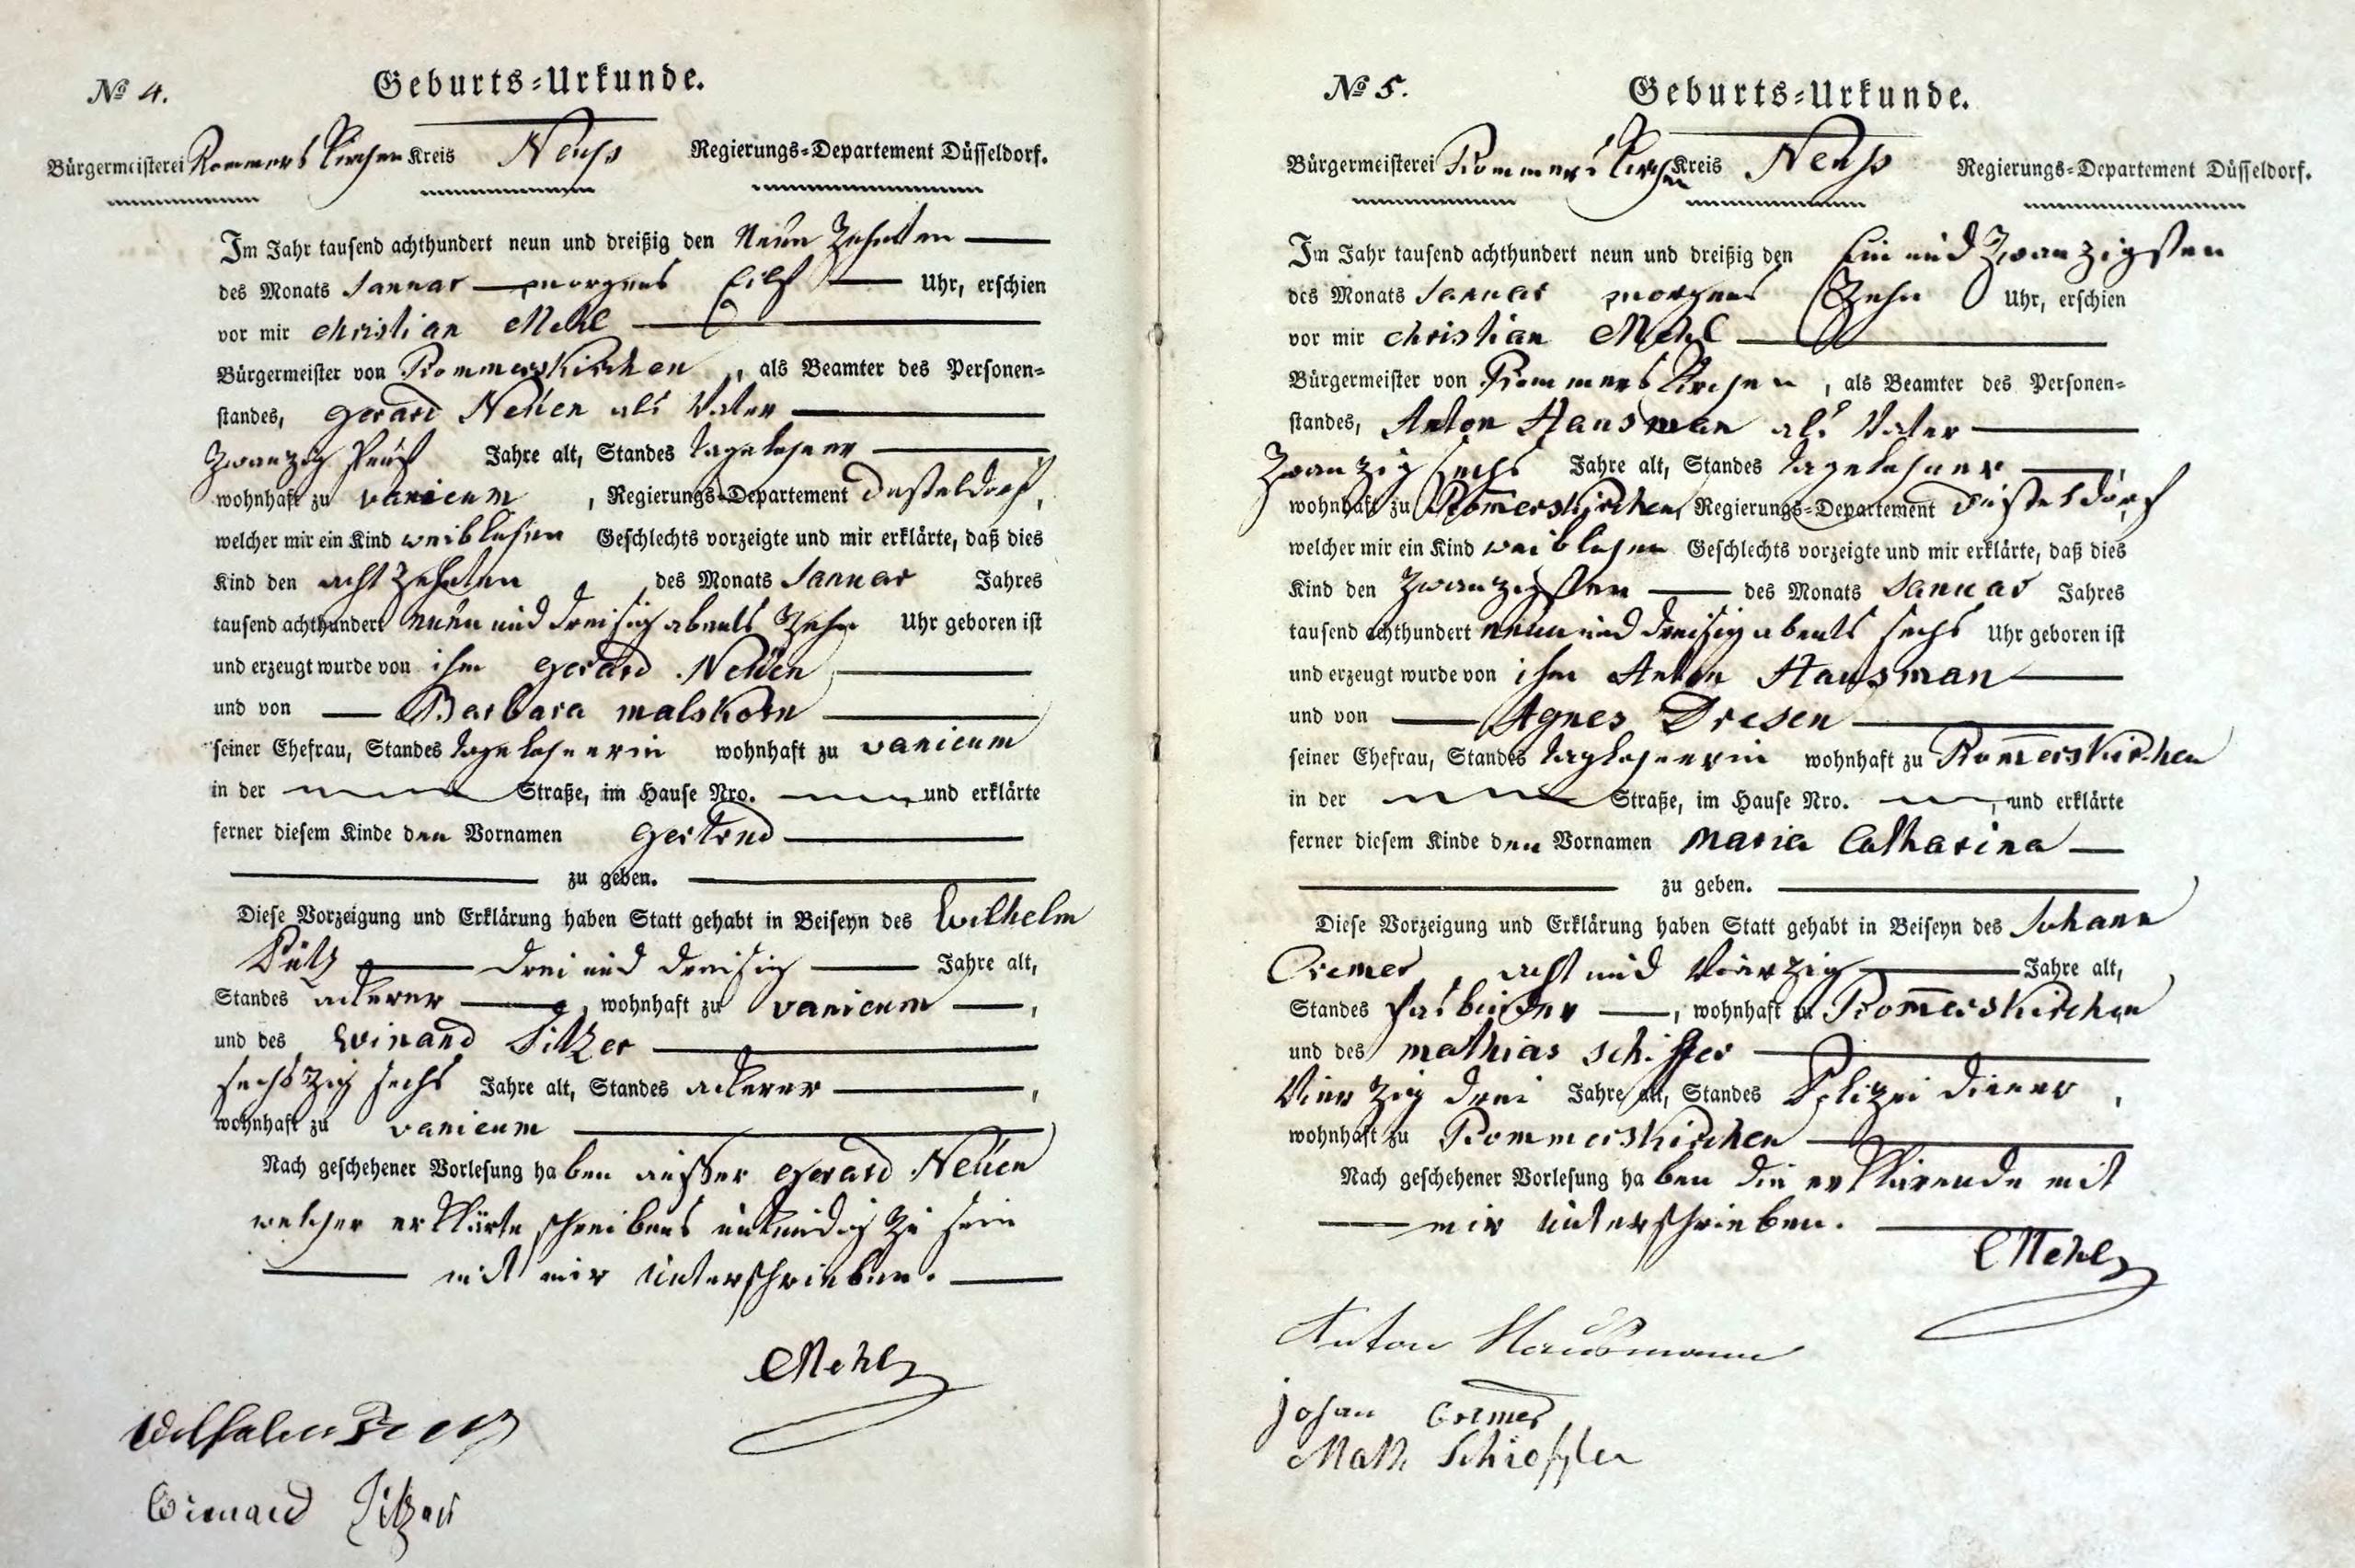 № 4.
Geburts-Urkunde.
Bürgermeisterei Rommerskirchen Kreis Neuß Regierungs-Departement Düsseldorf.
Im Jahr tausend achthundert neun und dreißig den Neun Zehnten
des Monats Januar morgens Eilf Uhr, erschien
vor mir Christian Mehl
Bürgermeister von Rommerskirchen, als Beamter des Personen-
standes, Gerard Neuen als Vater
Zwanzig Fünf Jahre alt, Standes Tagelohner
wohnhaft zu vanicum, Regierungs-Departement Dusseldorf,
welcher mir ein Kind weiblichen Geschlechts vorzeigte und mir erklärte, daß dies
Kind den acht Zehnten des Monats Januar Jahres
tausend achthundert neun und dreisig abends Zehn Uhr geboren ist
und erzeugt wurde von ihm Gerard Neuen
und von Barbara malskorn
seiner Ehefrau, Standes Tagelohnerin wohnhaft zu vanicum
in der Straße, im Hause Nro. und erklärte
ferner diesem Kinde den Vornamen Gertrud
zu geben.
Diese Vorzeigung und Erklärung haben Statt gehabt in Beiseyn des Wilhelm
drei und dreisig Jahre alt,
Standes ackerer, wohnhaft zu vanicum,
und des Winand Sitzer
sechszig sechs Jahre alt, Standes ackerer,
wohnhaft zu vanicum
Nach geschehener Vorlesung haben außer Gerard Neuen
welcher erklärte schreibens unkundig zu sein
mit mir unterschrieben.
CMehl
Wilhelm
Winand Sitzer
№ 5.
Geburts-Urkunde.
Bürgermeisterei Rommerskirchen Kreis Neuß Regierungs-Departement Düsseldorf.
Im Jahr tausend achthundert neun und dreißig den Ein und Zwanzigsten
des Monats Januar morgens Zehn Uhr, erschien
vor mir Christian Mehl
Bürgermeister von Rommerskirchen, als Beamter des Personen-
standes, Anton Hausman als Vater
Zwanzig sechs Jahre alt, Standes Tagelohner
wohnhaft zu Rom̅erskirchen, Regierungs-Departement Düsseldorf
welcher mir ein Kind weiblichen Geschlechts vorzeigte und mir erklärte, daß dies
Kind den Zwanzigsten des Monats Januar Jahres
tausend achthundert neun und dreisig abents sechs Uhr geboren ist
und erzeugt wurde von ihm Anton Hausman
und von Agnes Dresen
seiner Ehefrau, Standes Taglohnerin wohnhaft zu Rom̅erskirchen
in der Straße, im Hause Nro. , und erklärte
ferner diesem Kinde den Vornamen Maria Catharina
zu geben.
Diese Vorzeigung und Erklärung haben Statt gehabt in Beiseyn des Johann
Cremer, acht und Vierzig Jahre alt,
Standes Fasbinder, wohnhaft zu Rom̅erskirchen
und des mathias schiffer
Vierzig drei Jahre alt, Standes Polizei diener,
wohnhaft zu Rommerskirchen
Nach geschehener Vorlesung haben die erklärende mit
mir unterschrieben.
CMehl
Anton Hausmann
Johan Cremer
Math Schieffer